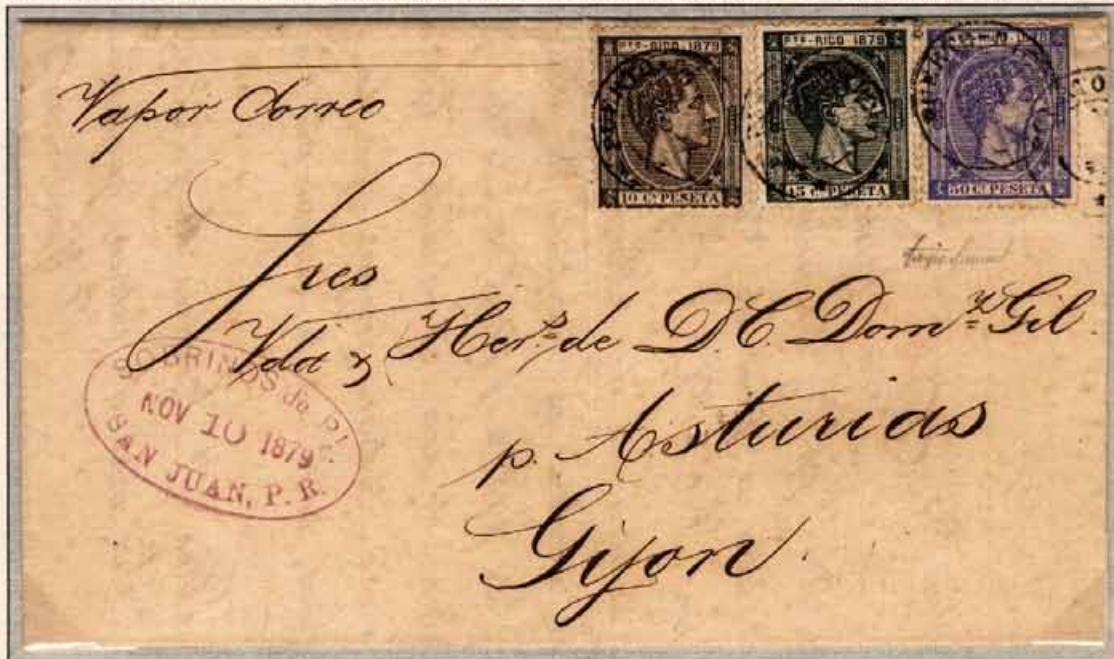 Vapor Correo
Pto-RICO. 1879
10 Cs PESETA
Pto-RICO. 1879
15 Cs PESETA
1879
50 Cs PESETA
PUERTO
Sres
Vda y Hers de D. C. Domz Gil
p. Asturias
Gijon.
SOBRINOS de
NOV 10 1879
SAN JUAN, P. R.